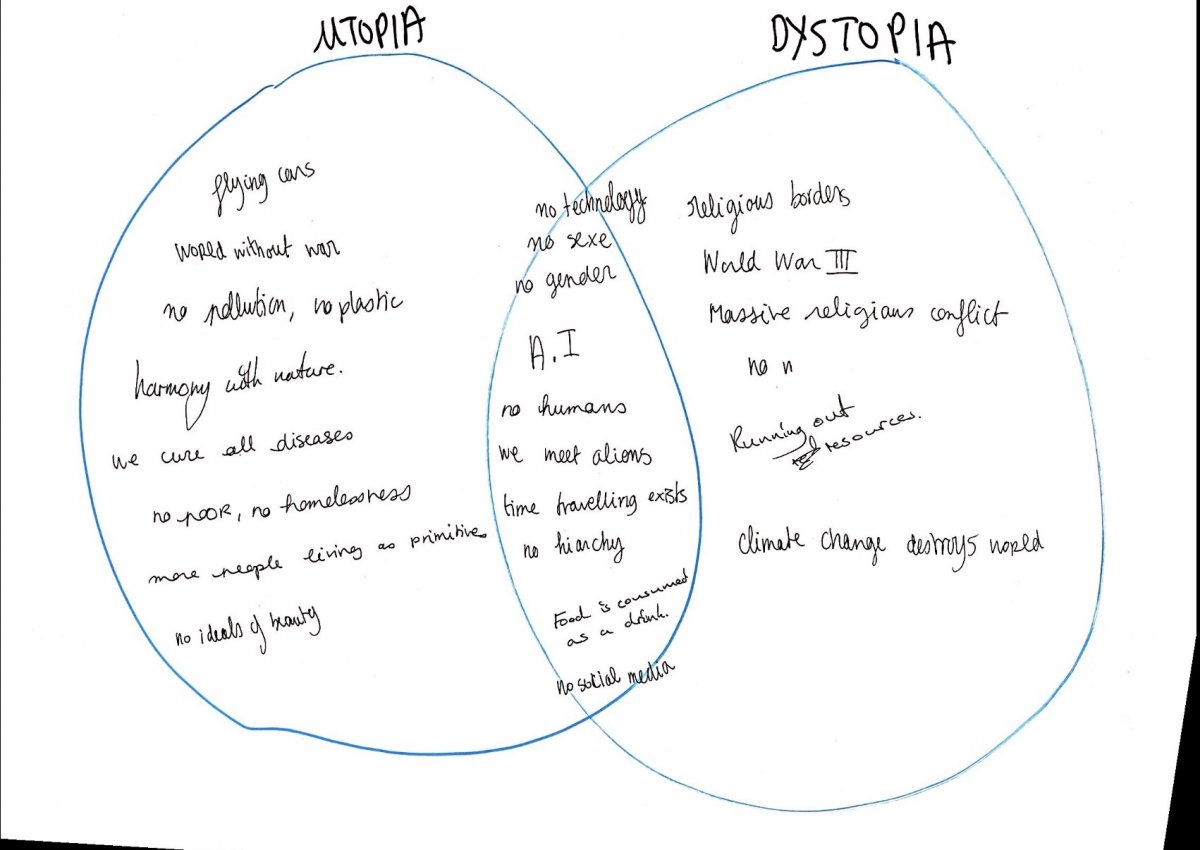 UTOPIA
DYSTOPIA
flying cars
world without war
no pollution, no plastic
harmony with nature.
we cure all diseases
no poor, no homelessness
more people living as primitives
no ideals of beauty
no technology
no sexe
no gender
A.I
no humans
we meet aliens
time travelling exists
no hiarchy
Food is consumed
as a drink.
no social media
religious borders
World War III
Massive religious conflict
no n
Running out
resources.
climate change destroys world